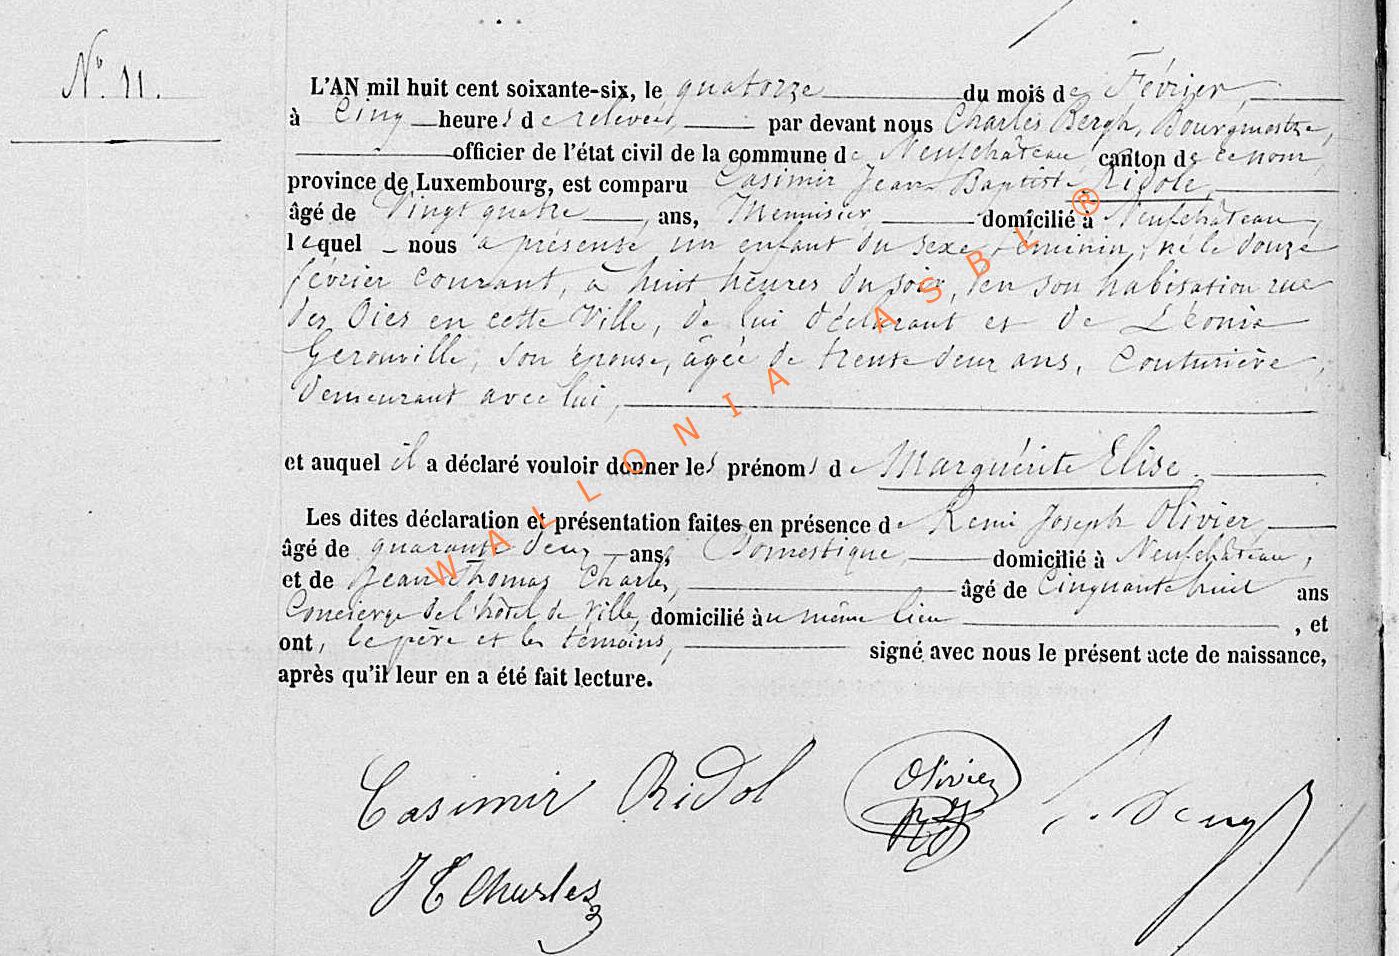 N° 11.
L'AN mil huit cent soixante-six, le quatorze du mois de Février,
à Cinq heures de relevée, par devant nous Charles Bergh, Bourgmestre,
officier de l'état civil de la commune de Neufchâteau, canton de ce nom,
province de Luxembourg, est comparu Casimir Jean Baptiste Ridole,
âgé de Vingt quatre ans, Menuisier, domicilié à Neufchâteau,
lequel nous a présenté un enfant du sexe féminin, né le douze
février courant, à huit heures du soir, en son habitation rue
des Oies en cette Ville, de lui déclarant et de Léonie
Gerouville, son épouse, âgée de trente deux ans, Couturière,
demeurant avec lui,
et auquel il a déclaré vouloir donner les prénoms de Marguérite Elise.
Les dites déclaration et présentation faites en présence de Remi Joseph Olivier,
âgé de quarante deux ans, Domestique, domicilié à Neufchâteau,
et de Jean Thomas Charles, âgé de Cinquante huit ans
Concierge de l'hôtel de Ville, domicilié au même lieu, et
ont, le père et les témoins, signé avec nous le présent acte de naissance,
après qu'il leur en a été fait lecture.
Casimir Ridol
Olivier
RJ
JT Charles
WALLONIA ASBL ®